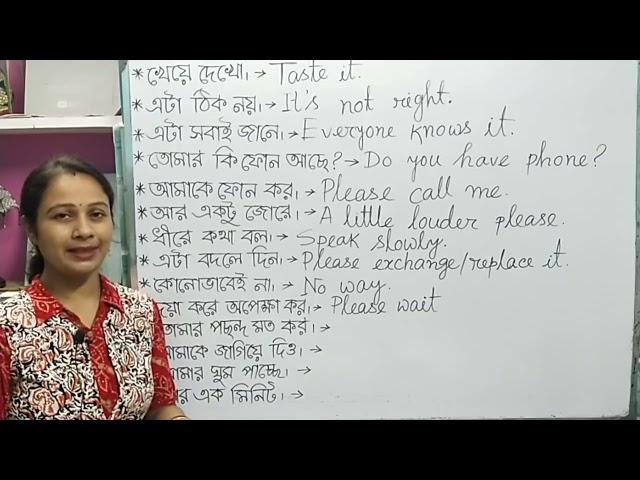 * খেয়ে দেখো। → Taste it.
* এটা ঠিক নয়। → It's not right.
* এটা সবাই জানে। → Everyone knows it.
* তোমার কি ফোন আছে? → Do you have phone?
* আমাকে ফোন কর। → Please call me.
* আর একটু জোরে। → A little louder please.
* ধীরে কথা বল। → Speak slowly.
* এটা বদলে দিন। → Please exchange/replace it.
* কোনোভাবেই না। → No way.
করে অপেক্ষা কর। → Please wait
পছন্দ মত কর। →
জাগিয়ে দিও। →
ঘুম পাচ্ছে। →
এক মিনিট। →